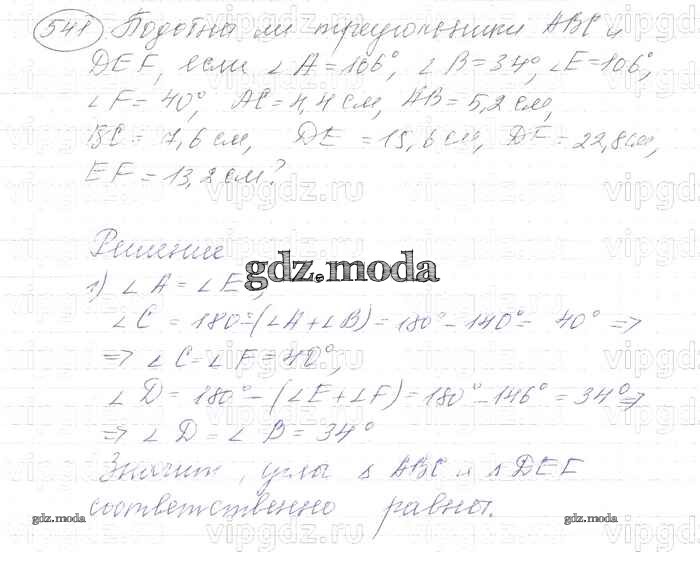 541 Подобны ли треугольники ABC и
DEF, если ∠A = 106°, ∠B = 34°, ∠E = 106°,
∠F = 40°, AC = 4,4 см, AB = 5,2 см,
BC = 7,6 см, DE = 15,6 см, DF = 22,8 см,
EF = 13,2 см?
Решение
gdz.moda
1) ∠A = ∠E,
∠C = 180° - (∠A + ∠B) = 180° - 140° = 40° =>
=> ∠C = ∠F = 40°,
∠D = 180° - (∠E + ∠F) = 180° - 146° = 34° =>
=> ∠D = ∠B = 34°
Значит, углы Δ ABC и Δ DEF
соответственно равны.
gdz.moda gdz.moda
vipgdz.ru